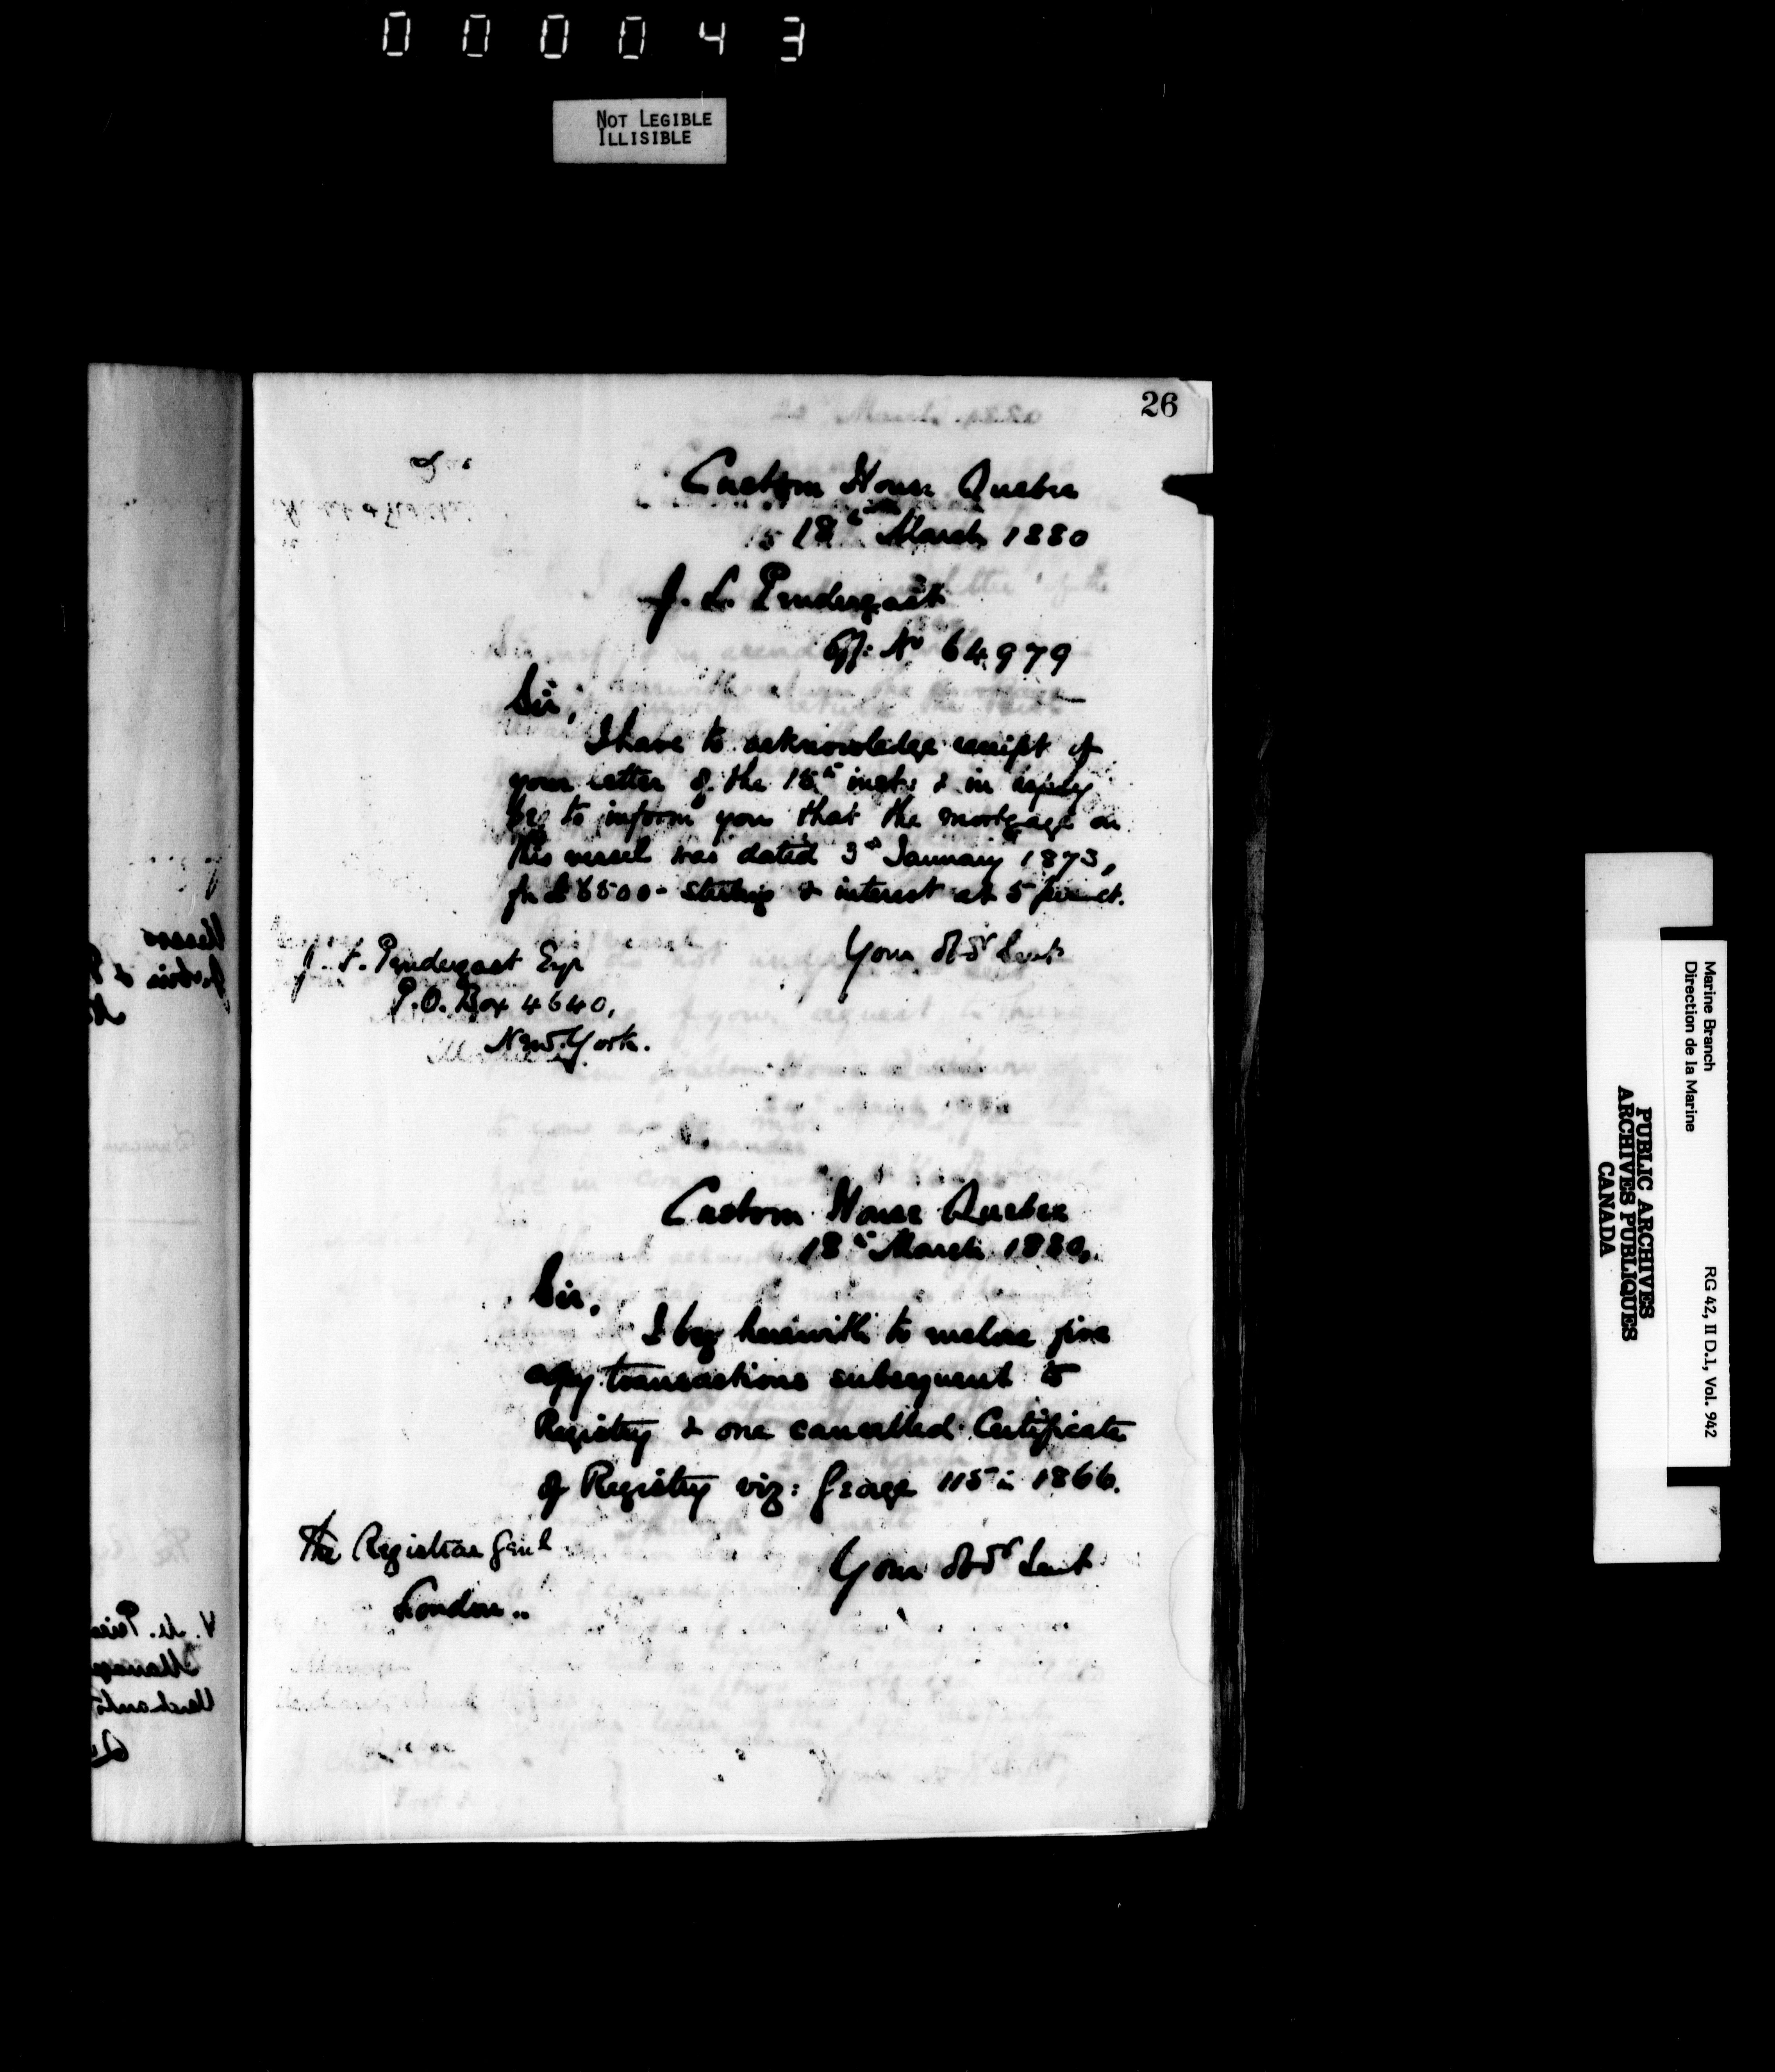 000043
NOT LEGIBLE
ILLISIBLE
26
Custom House Quebec
18th March 1880
J. L. Pendergast
Off: No 64,979
Sir,
I have to acknowledge receipt of
your letter of the 15th inst: & in reply
beg to inform you that the mortgage on
this vessel was dated 3rd January 1873,
for £6500- Sterling & interest at 5 per ct.
Your Obdt Servt
J. F. Pendergast Esqr
P.O. Box 4640,
New York.
Custom House Quebec
18th March 1880,
Sir,
I beg herewith to enclose five
copy transactions subsequent to
Registry & one cancelled Certificate
of Registry viz: George 115 in 1866.
Your Obdt Servt
The Registrar Genl
London..
Marine Branch
Direction de la Marine
RG 42, II D.1, Vol. 942
PUBLIC ARCHIVES
ARCHIVES PUBLIQUES
CANADA